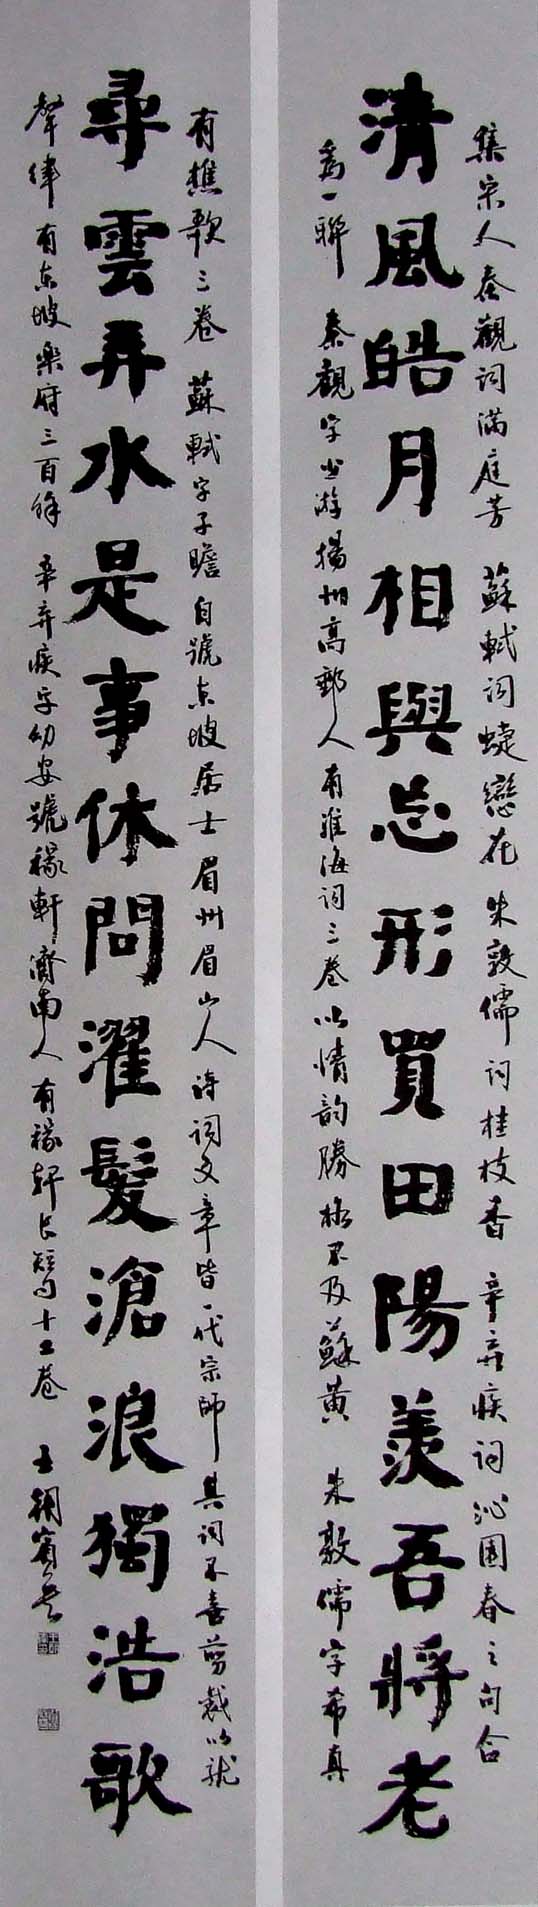 集宋人秦觀詞滿庭芳 蘇軾詞蝶戀花 朱敦儒詞桂枝香 辛弃疾詞沁園春之句合
清風皓月相與忘形買田陽羨吾將老
為一聯 秦觀字少游揚州高郵人有淮海詞三卷以情韵勝格不及蘇黄 朱敦儒字希真
有樵歌三卷 蘇軾字子瞻自號东坡居士眉州眉山人诗詞文章皆一代宗師其詞不喜剪裁以就
尋雲弄水是事休問濯髮滄浪獨浩歌
聲律有东坡樂府三百餘 辛弃疾字幼安號稼軒濟南人有稼軒长短句十二卷 王朝賓書